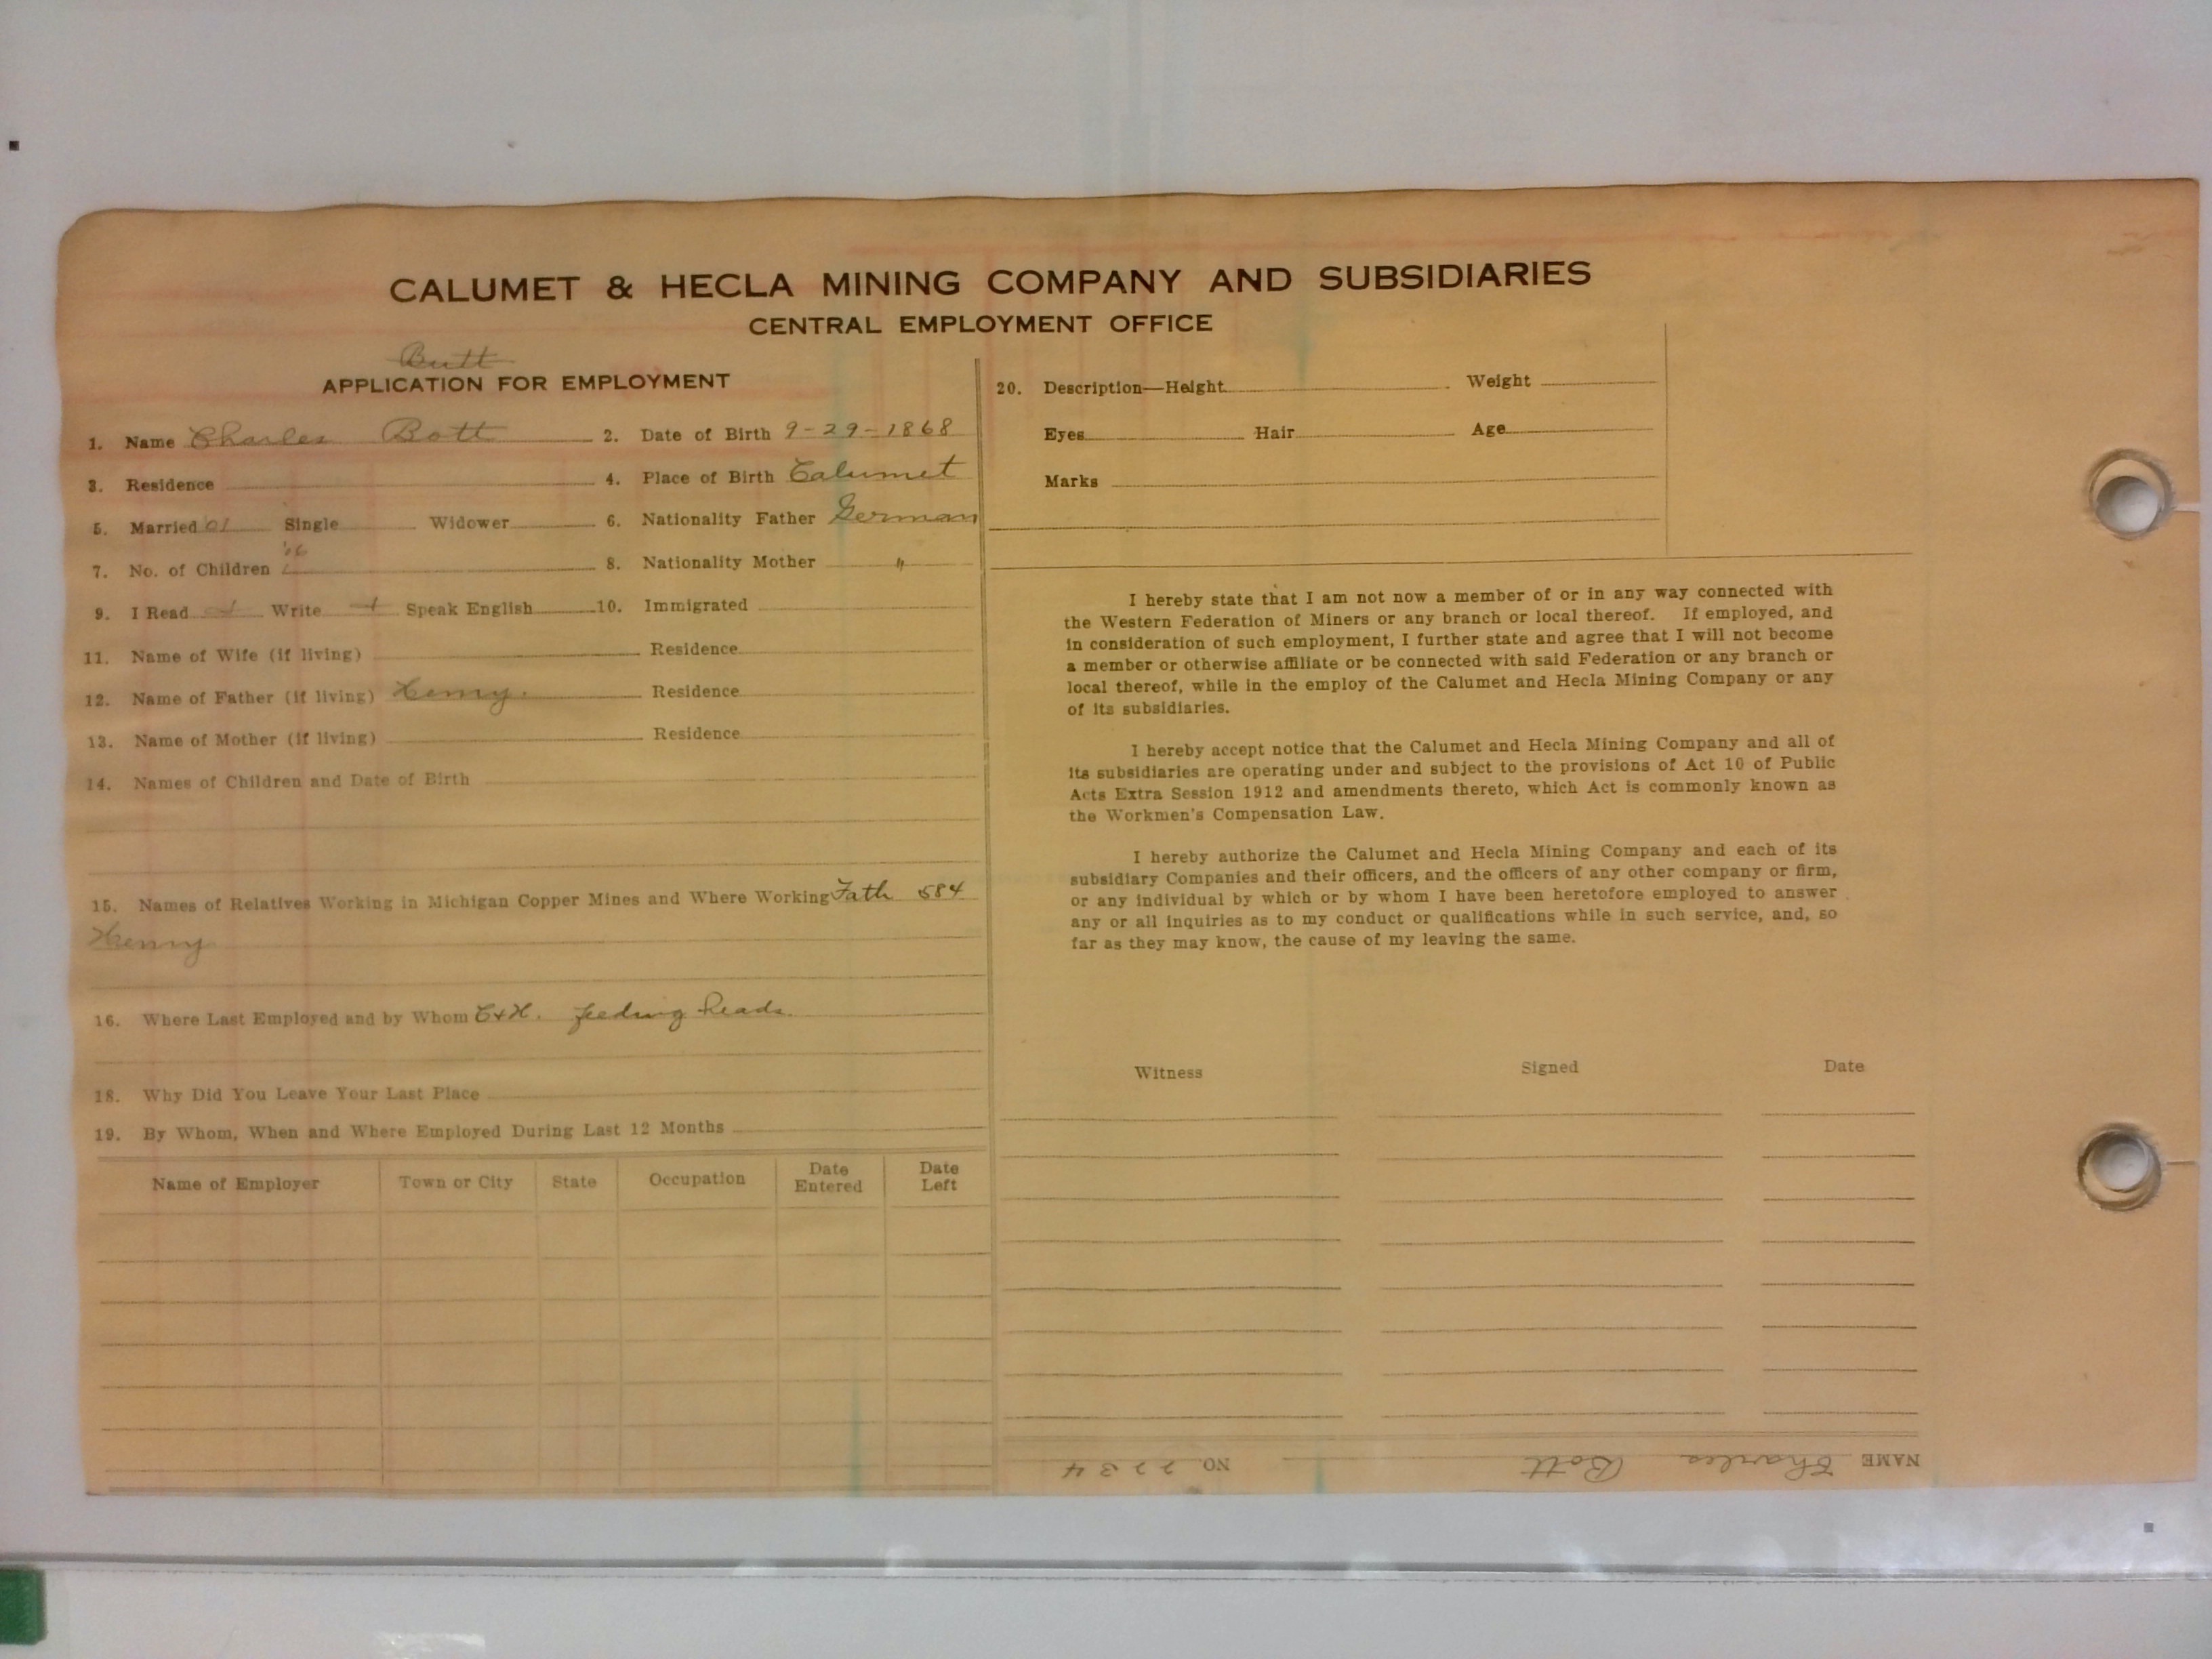 CALUMET & HECLA MINING COMPANY AND SUBSIDIARIES
CENTRAL EMPLOYMENT OFFICE
Butt
APPLICATION FOR EMPLOYMENT
1. Name Charles Bott 2. Date of Birth 9-29-1868
3. Residence 4. Place of Birth Calumet
5. Married Single Widower 6. Nationality Father German
7. No. of Children 8. Nationality Mother "
9. I Read Write Speak English 10. Immigrated
11. Name of Wife (if living) Residence
12. Name of Father (if living) Henry. Residence
13. Name of Mother (if living) Residence
14. Names of Children and Date of Birth
15. Names of Relatives Working in Michigan Copper Mines and Where Working Fath 584
Henry
16. Where Last Employed and by Whom C+H. feeding heads.
18. Why Did You Leave Your Last Place
19. By Whom, When and Where Employed During Last 12 Months
Name of Employer Town or City State Occupation Date Entered Date Left
20. Description—Height Weight
Eyes Hair Age
Marks
I hereby state that I am not now a member of or in any way connected with
the Western Federation of Miners or any branch or local thereof. If employed, and
in consideration of such employment, I further state and agree that I will not become
a member or otherwise affiliate or be connected with said Federation or any branch or
local thereof, while in the employ of the Calumet and Hecla Mining Company or any
of its subsidiaries.
I hereby accept notice that the Calumet and Hecla Mining Company and all of
its subsidiaries are operating under and subject to the provisions of Act 10 of Public
Acts Extra Session 1912 and amendments thereto, which Act is commonly known as
the Workmen's Compensation Law.
I hereby authorize the Calumet and Hecla Mining Company and each of its
subsidiary Companies and their officers, and the officers of any other company or firm,
or any individual by which or by whom I have been heretofore employed to answer
any or all inquiries as to my conduct or qualifications while in such service, and, so
far as they may know, the cause of my leaving the same.
Witness Signed Date
NAME Charles Bott NO. 2234